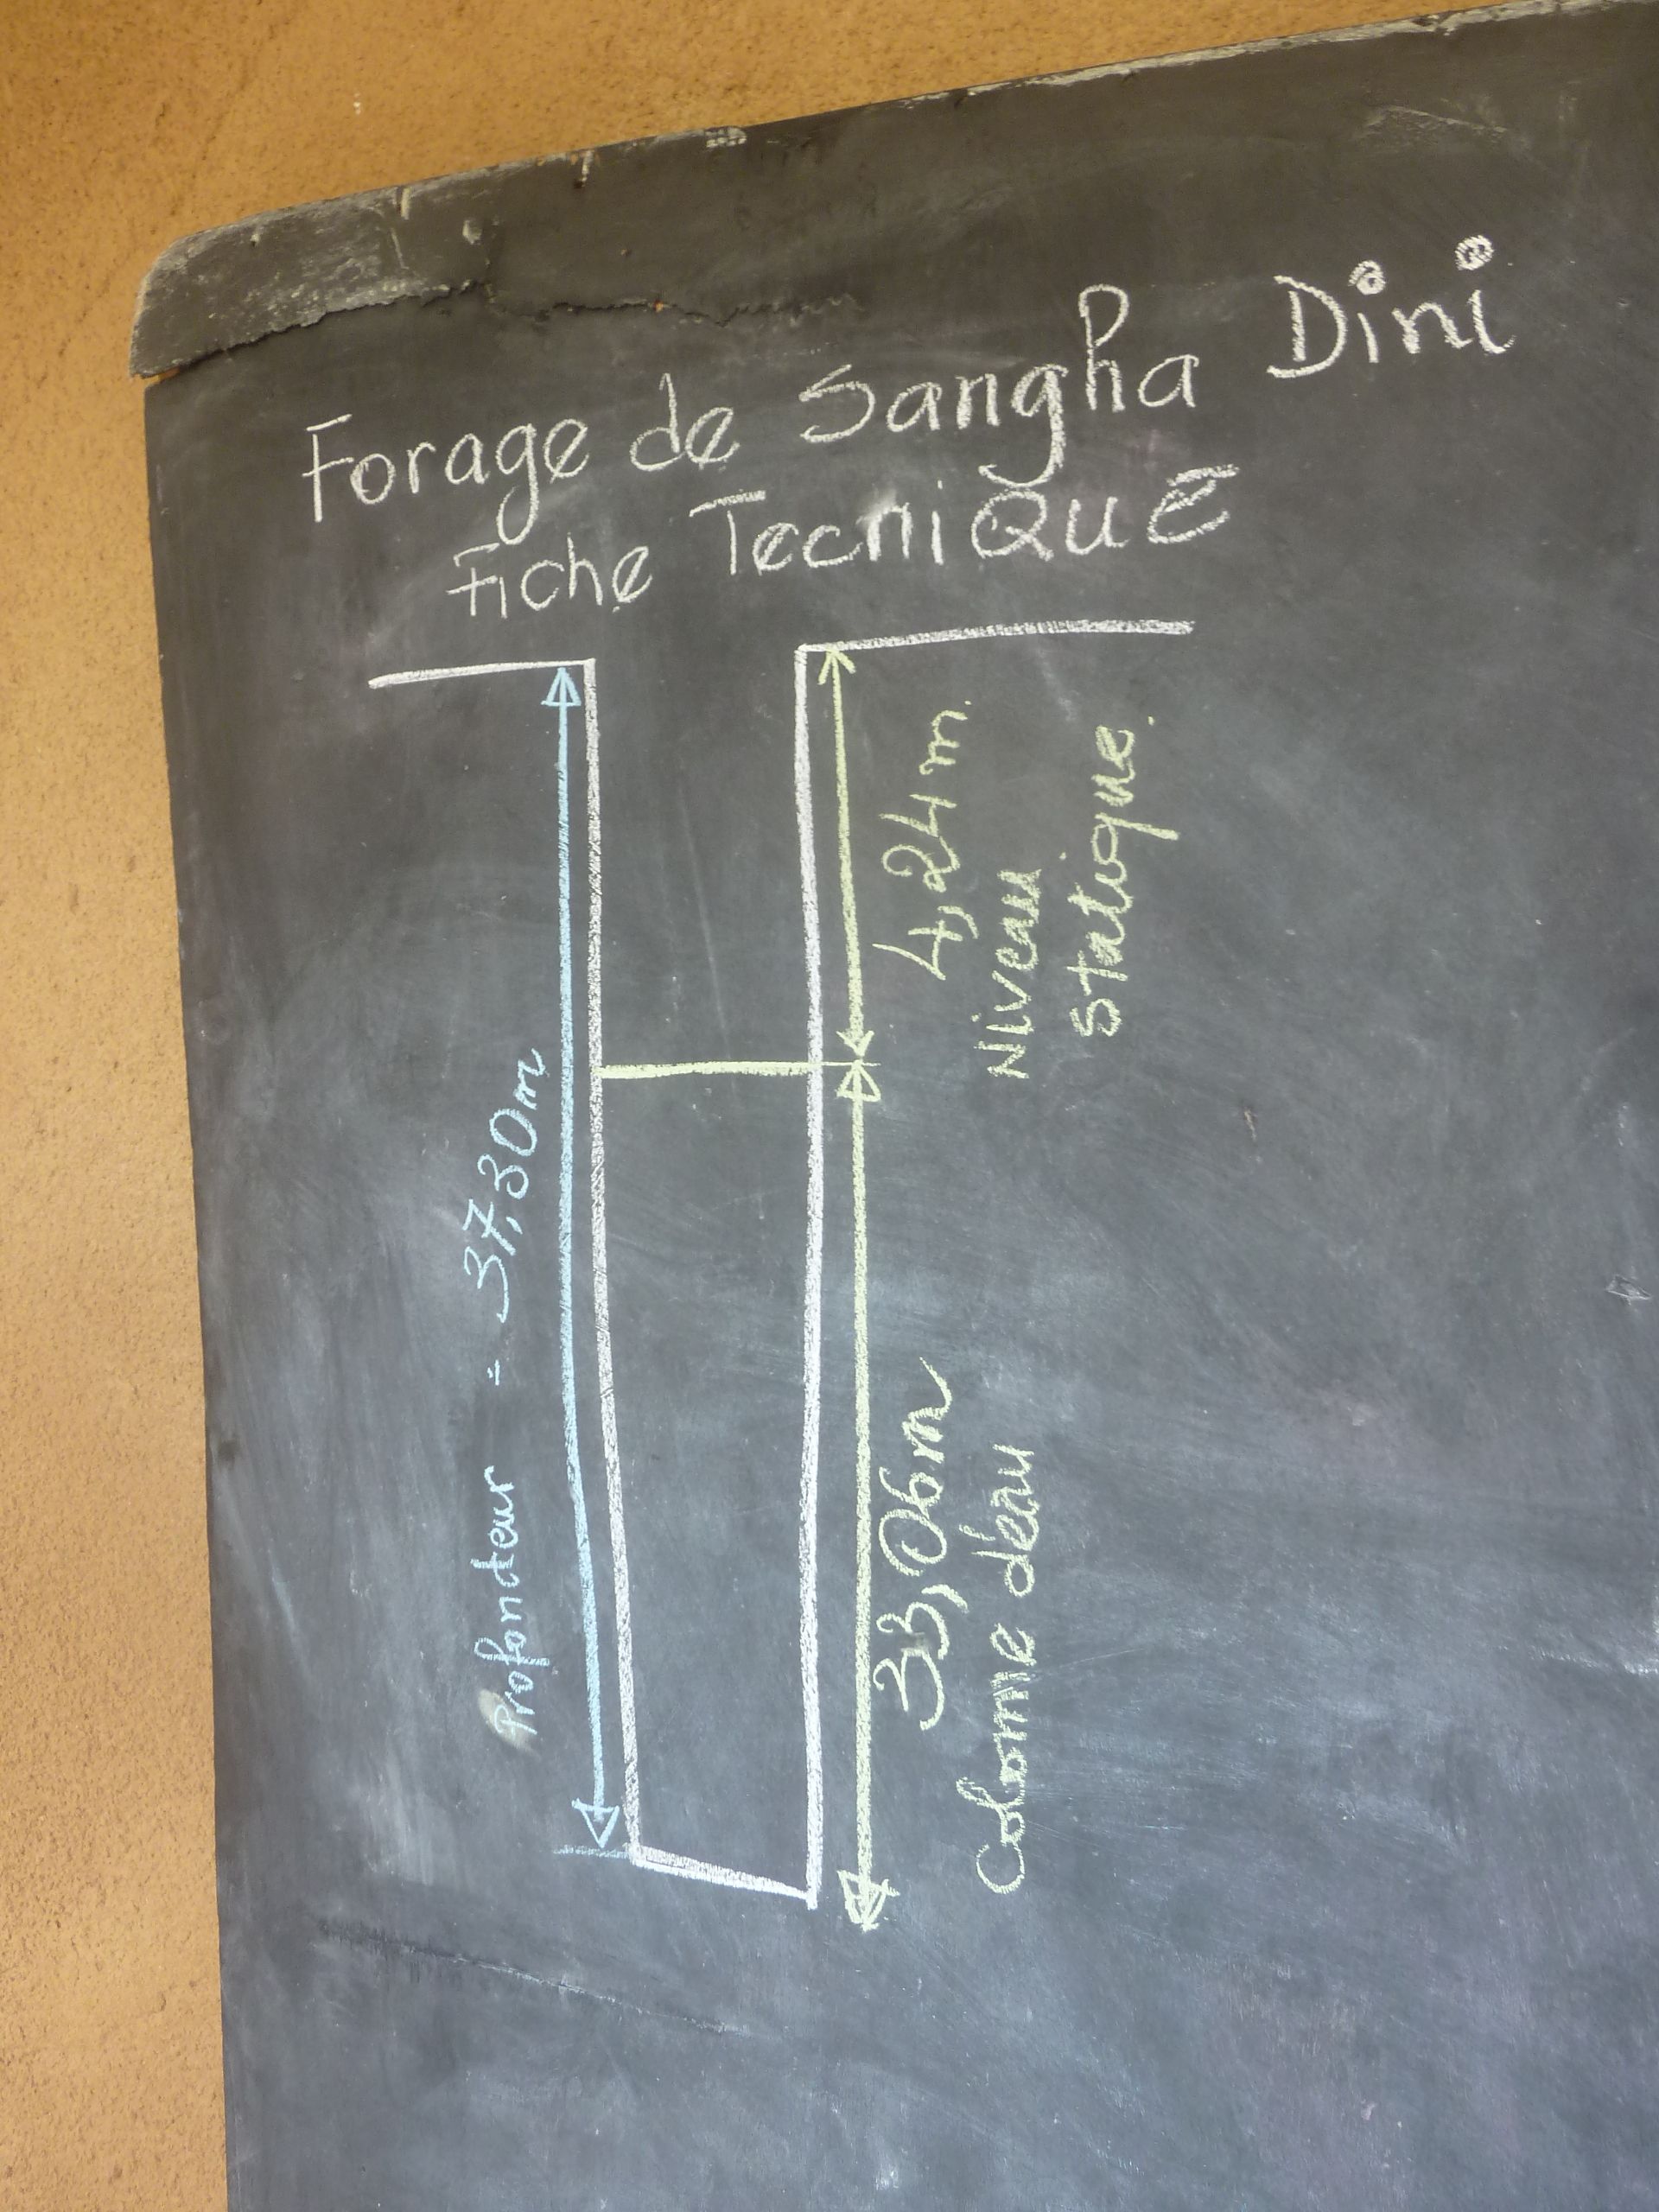 Forage de Sangha Dini
Fiche TecniQUE
Profondeur = 37,30m
4,24m.
Niveau
statique.
33,06m
Colonne d'eau